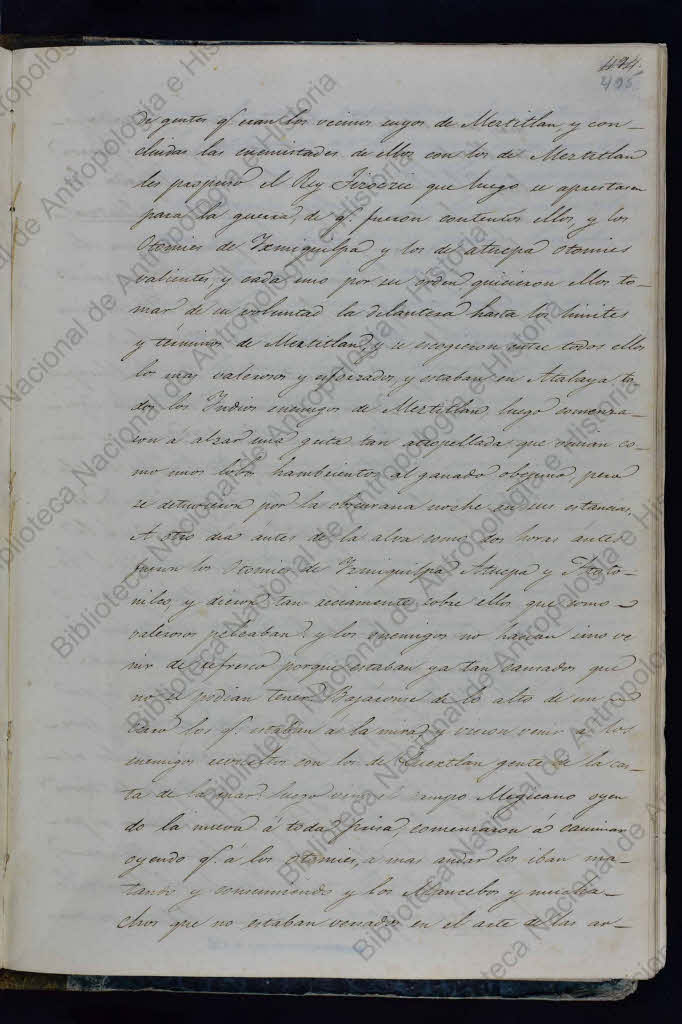 494.
495
de gentes q.e eran los vecinos suyos de Meztitlan y con-
cluidas las enemistades de ellos con los de Meztitlan
les propuso el Rey Tizozic que luego se aprestasen
para la guerra, de q.e fueron contentos ellos, y los
Otomies de Yzmiquilpa y los de atucpa otomies
valientes, y cada uno por su orden quicieron ellos to-
mar de su voluntad la delantera hasta los limites
y términos de Meztitlan, y se escogieron entre todos ellos
lo mas valerosos y esforzados, y estaban en Atalaya to-
dos los Indios enemigos de Meztitlan, luego comenza-
ron á alzar una grita tan atropellada que venian co-
mo unos lobos hambrientos al ganado obejuno, pero
se detuvieron por la obscurana noche en sus estancias.
A otro dia ántes de la alva como dos horas ántes
fueron los Otomies de Yzmiquilpa Atucpa y Atoto-
nilco, y dieron tan reciamente sobre ellos que como
valerosos peleaban: y los enemigos no hacian sino ve
nir de refresco porque estaban ya tan cansados que
no se podian tener. Bajáronse de lo alto de un
cerro los q.e estaban a la mira, y vieron venir a los
enemigos revueltos con los de Cuextlan gente de la cos-
ta de la mar: luego vino el campo Megicano oyen
do la nueva á toda prisa, comenzaron á caminar
oyendo q.e á los otomies, a mas andar los iban ma-
tando y consumiendo y los Mancebos y mucha-
chos que no estaban versados en el arte de las ar-
Biblioteca Nacional de Antropología e Historia